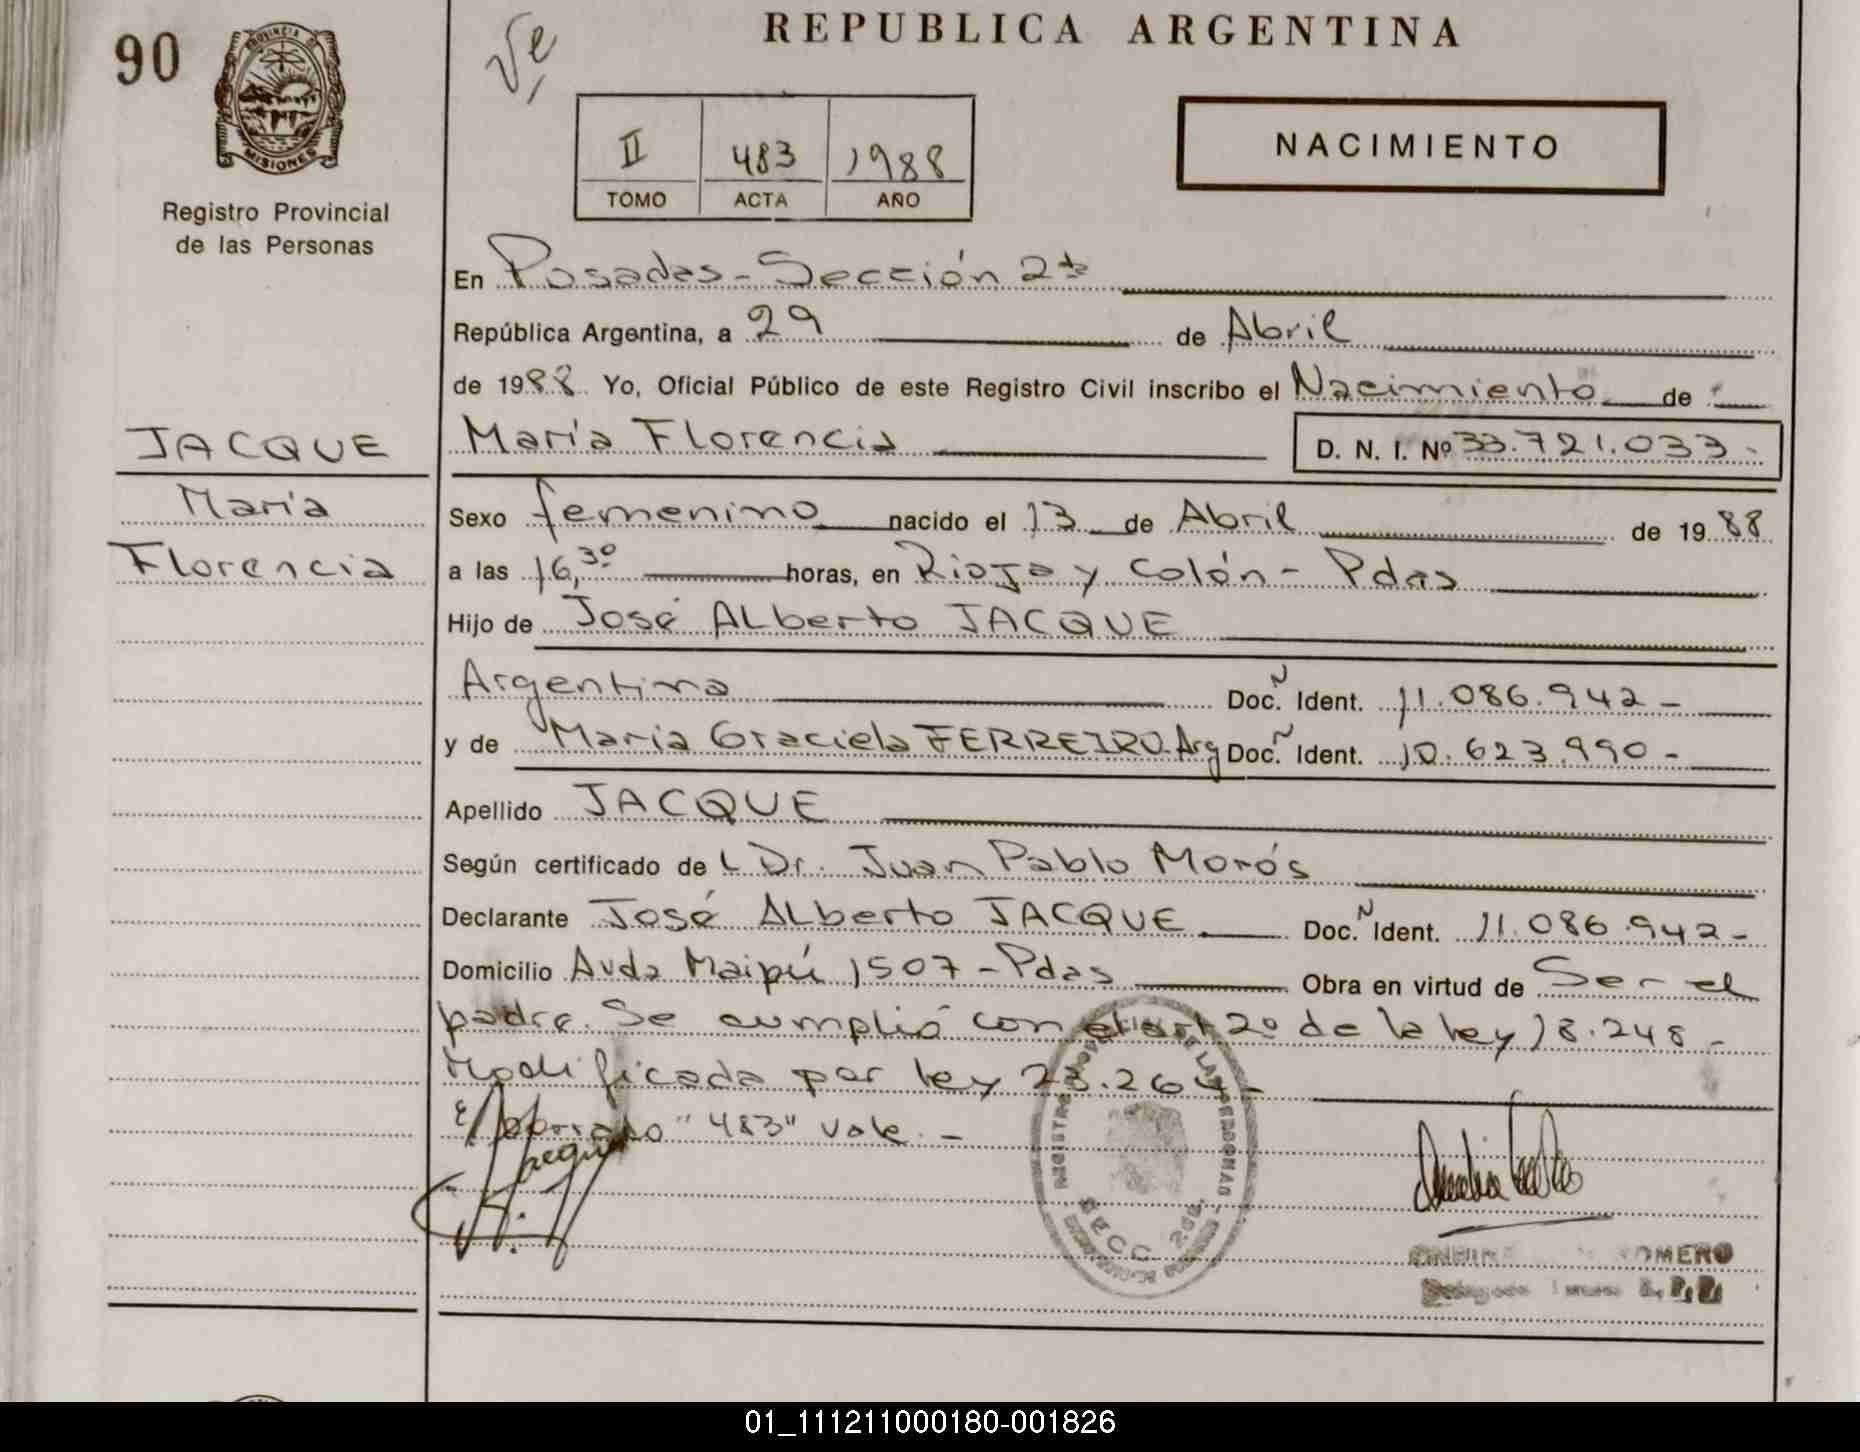 90
REPUBLICA ARGENTINA
PROVINCIA DE
MISIONES
Registro Provincial
de las Personas
II 483 1988
TOMO ACTA AÑO
NACIMIENTO
En Posadas - Sección 2da
República Argentina, a 29 de Abril
de 1988 Yo, Oficial Público de este Registro Civil inscribo el Nacimiento de :
JACQUE
María
Florencia
María Florencia D. N. I. Nº 33.721.033 -
Sexo femenino nacido el 13 de Abril de 1988
a las 16,30 horas, en Rioja y Colón - Pdas
Hijo de José ALberto JACQUE
Argentino Doc. N Ident. 11.086.942 -
y de María Graciela FERREIRO. Arg Doc. N Ident. 10.623.990 -
Apellido JACQUE
Según certificado de L Dr. Juan Pablo Morós
Declarante José ALberto JACQUE Doc. N Ident. 11.086.942 -
Domicilio Avda Maipú 1507 - Pdas Obra en virtud de Ser el
padre. Se cumplió con el art 2º de la ley 18.248 -
Modificada por ley 23.264 -
"483" vale. -
REGISTRO DE LAS PERSONAS
SECC. 2da.
OMERO
01_111211000180-001826